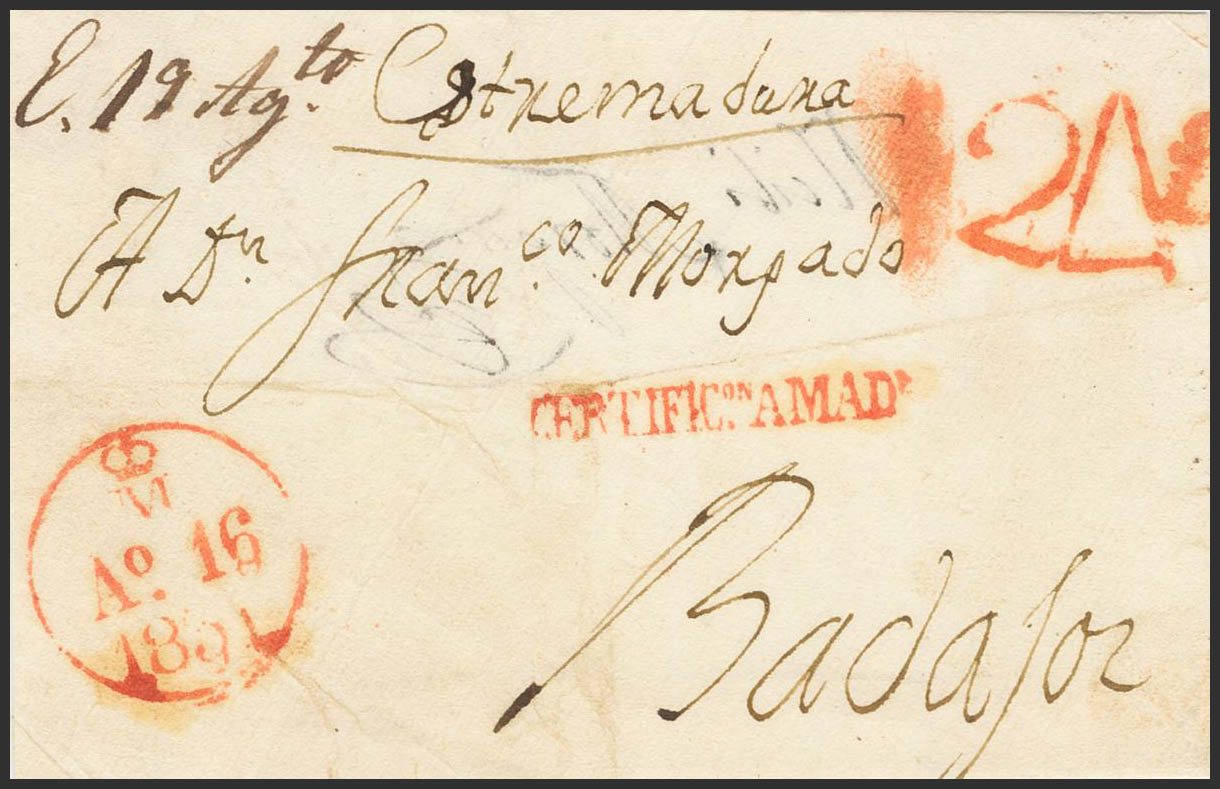 E. 19 Ag.to Estremadura
24
A Dn Fran.co Morgado
CERTIFIC.ON A MAD
M
Ao. 16
Badajoz